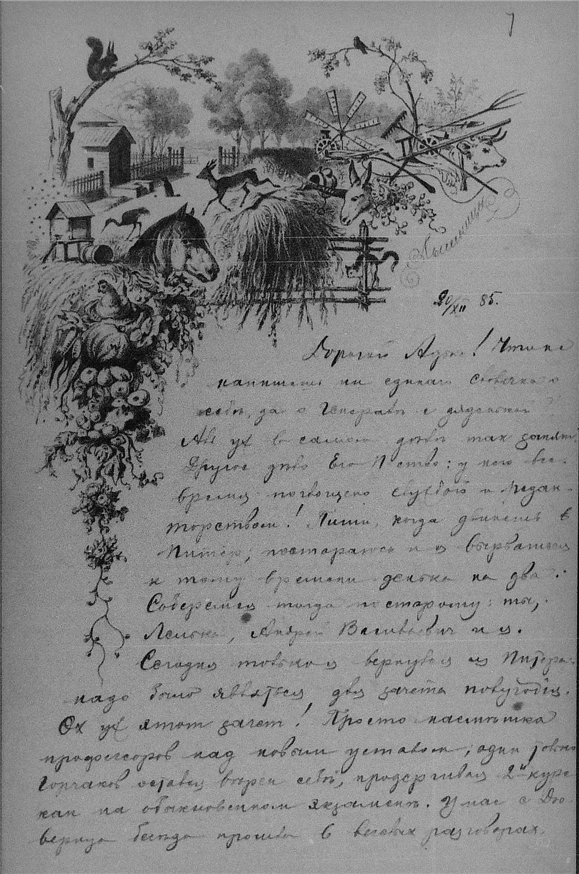 7
20/XII 85.
Дорогой Адя! Что не
напишешь ни единаго словечка о
себѣ, да о Генералѣ с дядюшкой
Али уж в самом дѣлѣ так занят
Другое дѣло Его П-ство: у него все
время поглощено службой и
торством! Пиши, когда двинешь в
Питер, постараюсь и я вырваться
к тому времени денька на два.
Соберемся тогда по старому: ты,
Лелька, Андрей Васильевич и я.
Сегодня только я вернулся из Питера:
надо было явиться для зачета полугодія.
Ох уж этот зачет! Просто насмѣшка
профессоров над новым уставом; один только
Горчаков остался вѣрен себѣ, продержівал 2й курс
как на обыкновенном экзаменѣ. У нас с
бесѣда прошла в веселых разговорах.